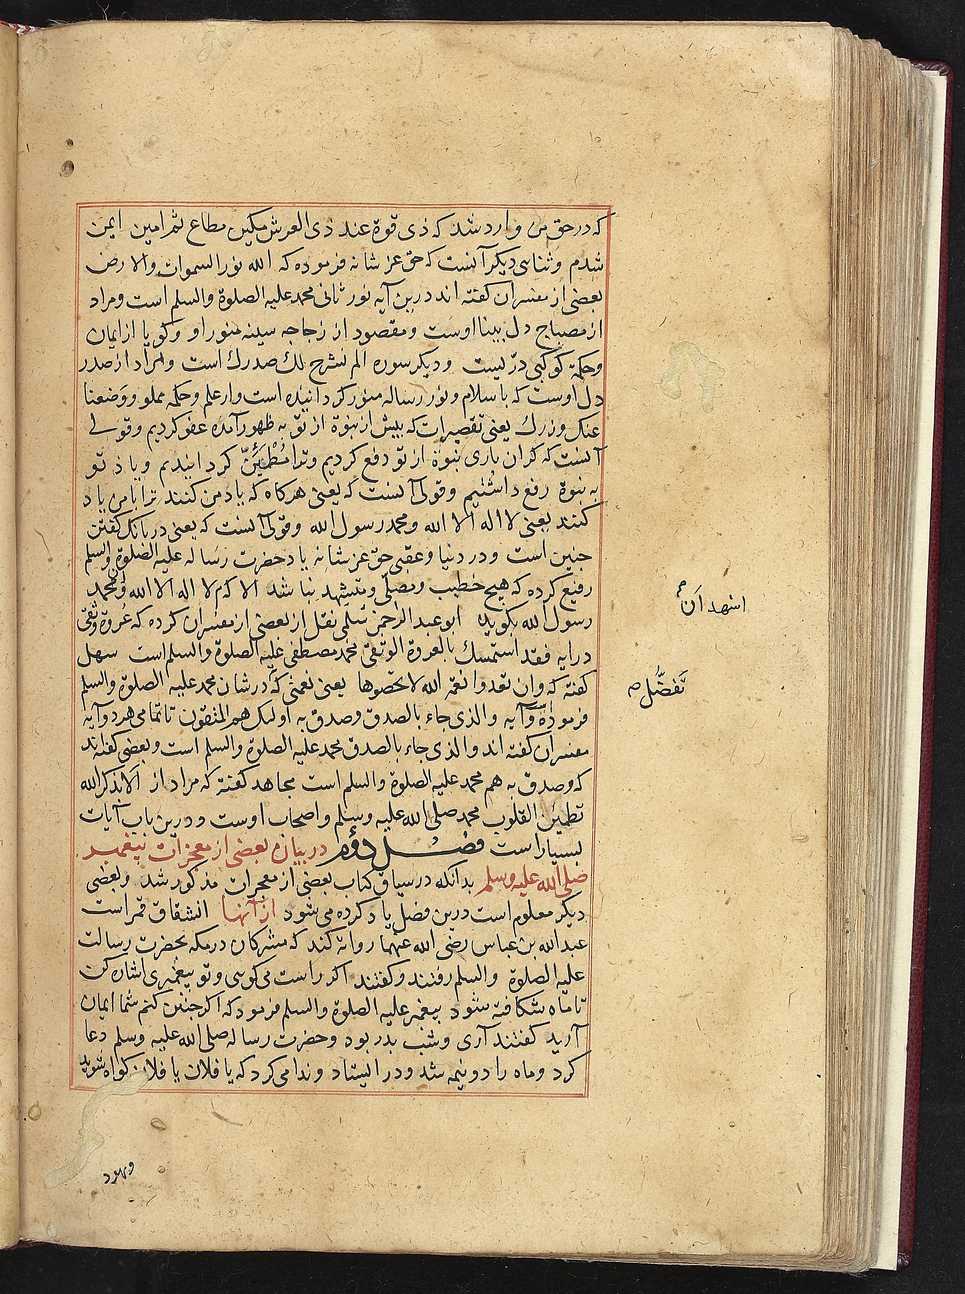 که در حق من وارد شد که ذی قوة عند ذی العرش مکین مطاع ثم امین ایمن
شدم و ثنای دیکر آنست که حق عز شانه فرموده که الله نور السموات والارض
بعضی از مفسران کفته اند درین آیه نور ثانی محمد علیه الصلوة والسلم است ومراد
از مصباح دل بینا اوست ومقصود از زجاجه سینه منور او وکویا از ایمان
وحکمة کوکبی دریست ودیکر سوره الم نشرح لك صدرك است ومراد از صدر
دل اوست که باسلام ونور رساله منور کردانیده است واز علم وحکمه مملو ووضعنا
عنك وزرك یعنی تقصیرات که پیش از نبوة از تو به ظهور آمده عفو کردیم وقولی
آنست که کران باری نبوة از تو دفع کردیم وترا مطمئن کردانیدیم ویاد تو
به نبوة رفع داشتیم وقولی آنست که یعنی هرکاه که یاد من کنند ترا بامن یاد
کنند یعنی لا اله الا الله ومحمد رسول الله وقولی آنست که یعنی در بانك کفتن
چنین است ودر دنیا وعقبی حق عز شانه یاد حضرت رساله علیه الصلوة والسلم
رفیع کرده که هیچ خطیب ومصلی ومتشهد نباشد الا که لا اله الا الله ومحمد
رسول الله بکوید ابو عبد الرحمن سلمی نقل از بعضی از مفسران کرده که عروة وثقی
در آیه فقد استمسك بالعروة الوثقی محمد مصطفی علیه الصلوة والسلم است سهل
کفته که وان تعدوا نعمة الله لا تحصوها یعنی نعمتی که در شان محمد علیه الصلوة والسلم
فرموده وآیه والذی جاء بالصدق وصدق به اولئك هم المتقون تا تمامی هر دو آیه
مفسران کفته اند والذی جاء بالصدق محمد علیه الصلوة والسلم است وبعضی کفته اند
که وصدق به هم محمد علیه الصلوة والسلم است مجاهد کفته که مراد از الا بذکر الله
تطمئن القلوب محمد صلی الله علیه وسلم واصحاب اوست ودرین باب آیات
بسیار است فصل دوم در بیان بعضی از معجزات پیغمبر
صلی الله علیه وسلم بدانکه در سیاق کتاب بعضی از معجزات مذکور شد وبعضی
دیکر معلوم است درین فصل یاد کرده می شود از آنها انشقاق قمر است
عبد الله بن عباس رضی الله عنهما روایة کند که مشرکان در مکه بحضرت رسالت
علیه الصلوة والسلم رفتند وکفتند اکر راست می کویی وتو پیغمبری اشاره کن
تا ماه شکافته شود پیغمبر علیه الصلوة والسلم فرمود که اکر چنین کنم شما ایمان
آرید کفتند آری وشب بدر بود وحضرت رساله صلی الله علیه وسلم دعا
کرد وماه را دو نیمه شد ودر ایستاد وندا می کرد که یا فلان یا فلان کواه شوید
اشهد ان
تفضل